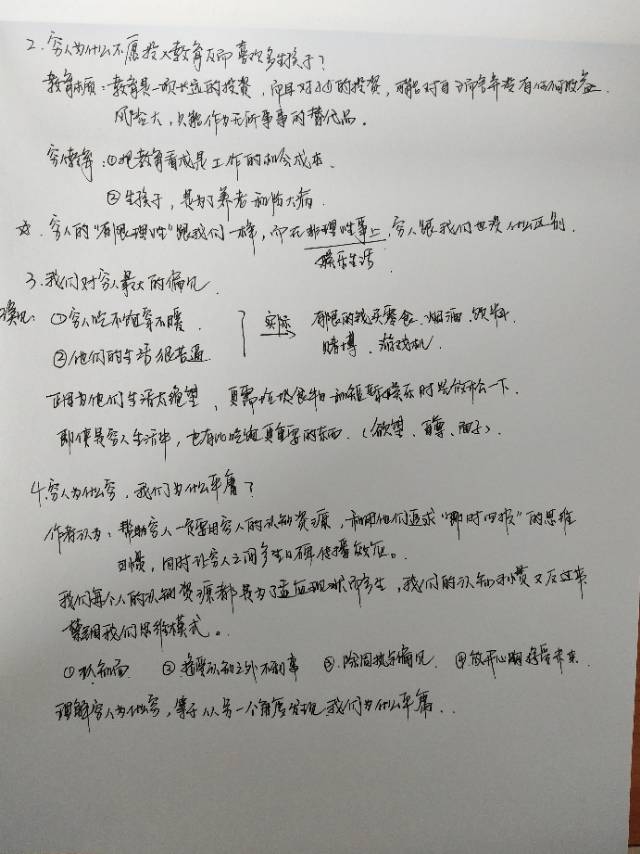 2. 穷人为什么不愿投入教育反而喜欢多生孩子?
教育本质:教育是一项长远的投资,而且对小的投资,可能对自己而言并没有任何收益.
风险大,只能作为无所事事的替代品。
穷人读书:①把教育看成是工作的机会成本.
②生孩子,是为了养老和防大病.
☆.穷人的“有限理性”跟我们一样,而在非理性事上,穷人跟我们也没什么区别.
娱乐生活
3.我们对穷人最大的偏见
误见:①穷人吃不饱穿不暖.
实际 有限的钱买零食、烟酒、饮料
②他们的生活很普遍
赌博、游戏机.
正因为他们生活太绝望,真需垃圾食物和短暂娱乐时光放松一下.
即使是穷人生活中,也有比吃饱更重要的东西.(欲望、自尊、面子).
4.穷人为什么穷,我们为什么平庸?
作者认为:帮助穷人一定要用穷人的认知资源,利用他们追求“即时回报”的思维
习惯,同时让穷人之间多生口碑传播效应。.
我们每个人的认知资源都是为了适应现状而产生,我们的认知习惯又反过来
禁锢我们思维模式。.
①认知面 ②接受认知之外的事 ③.除固执与偏见. ④放开心胸接受未来.
理解穷人为什么穷,等于从另一个角度发现我们为什么平庸...